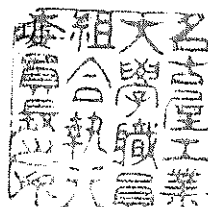 名古屋工業
大学職員
組合執行
委員長印